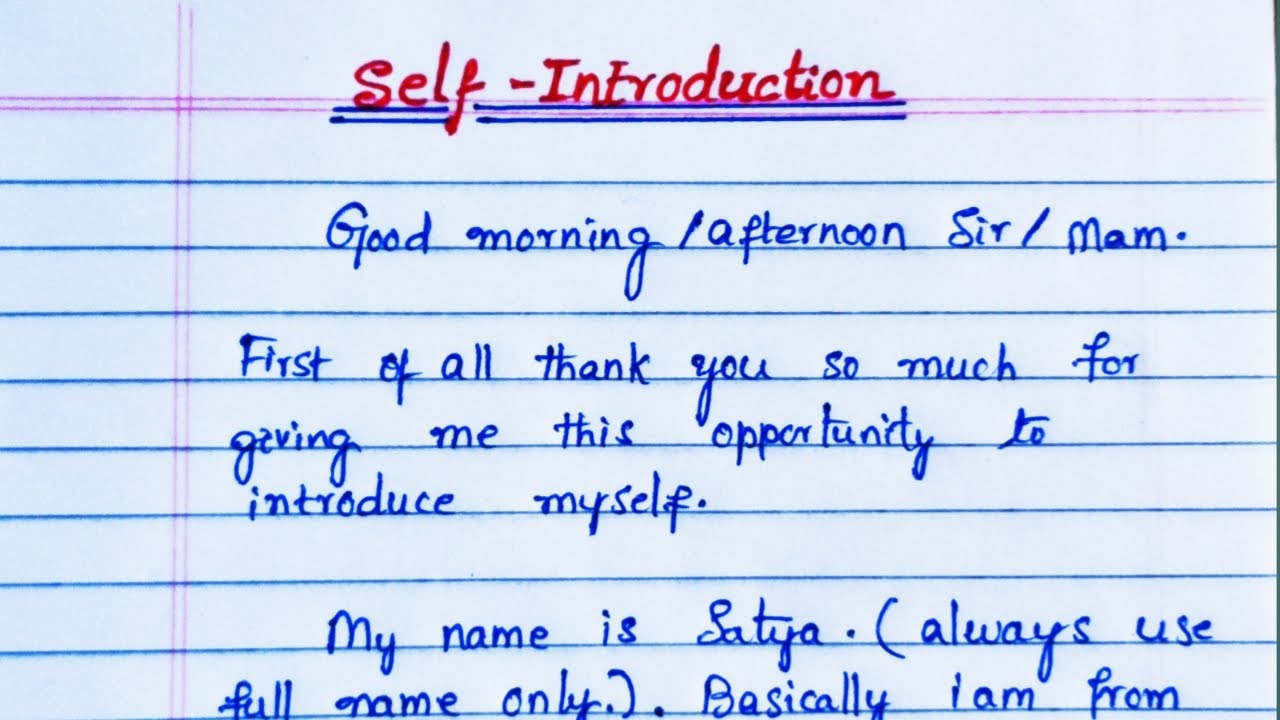 Self-Introduction
Good morning/afternoon Sir/Mam.
First of all thank you so much for
giving me this opportunity to
introduce myself.
My name is Satya. (always use
full name only.). Basically i am from